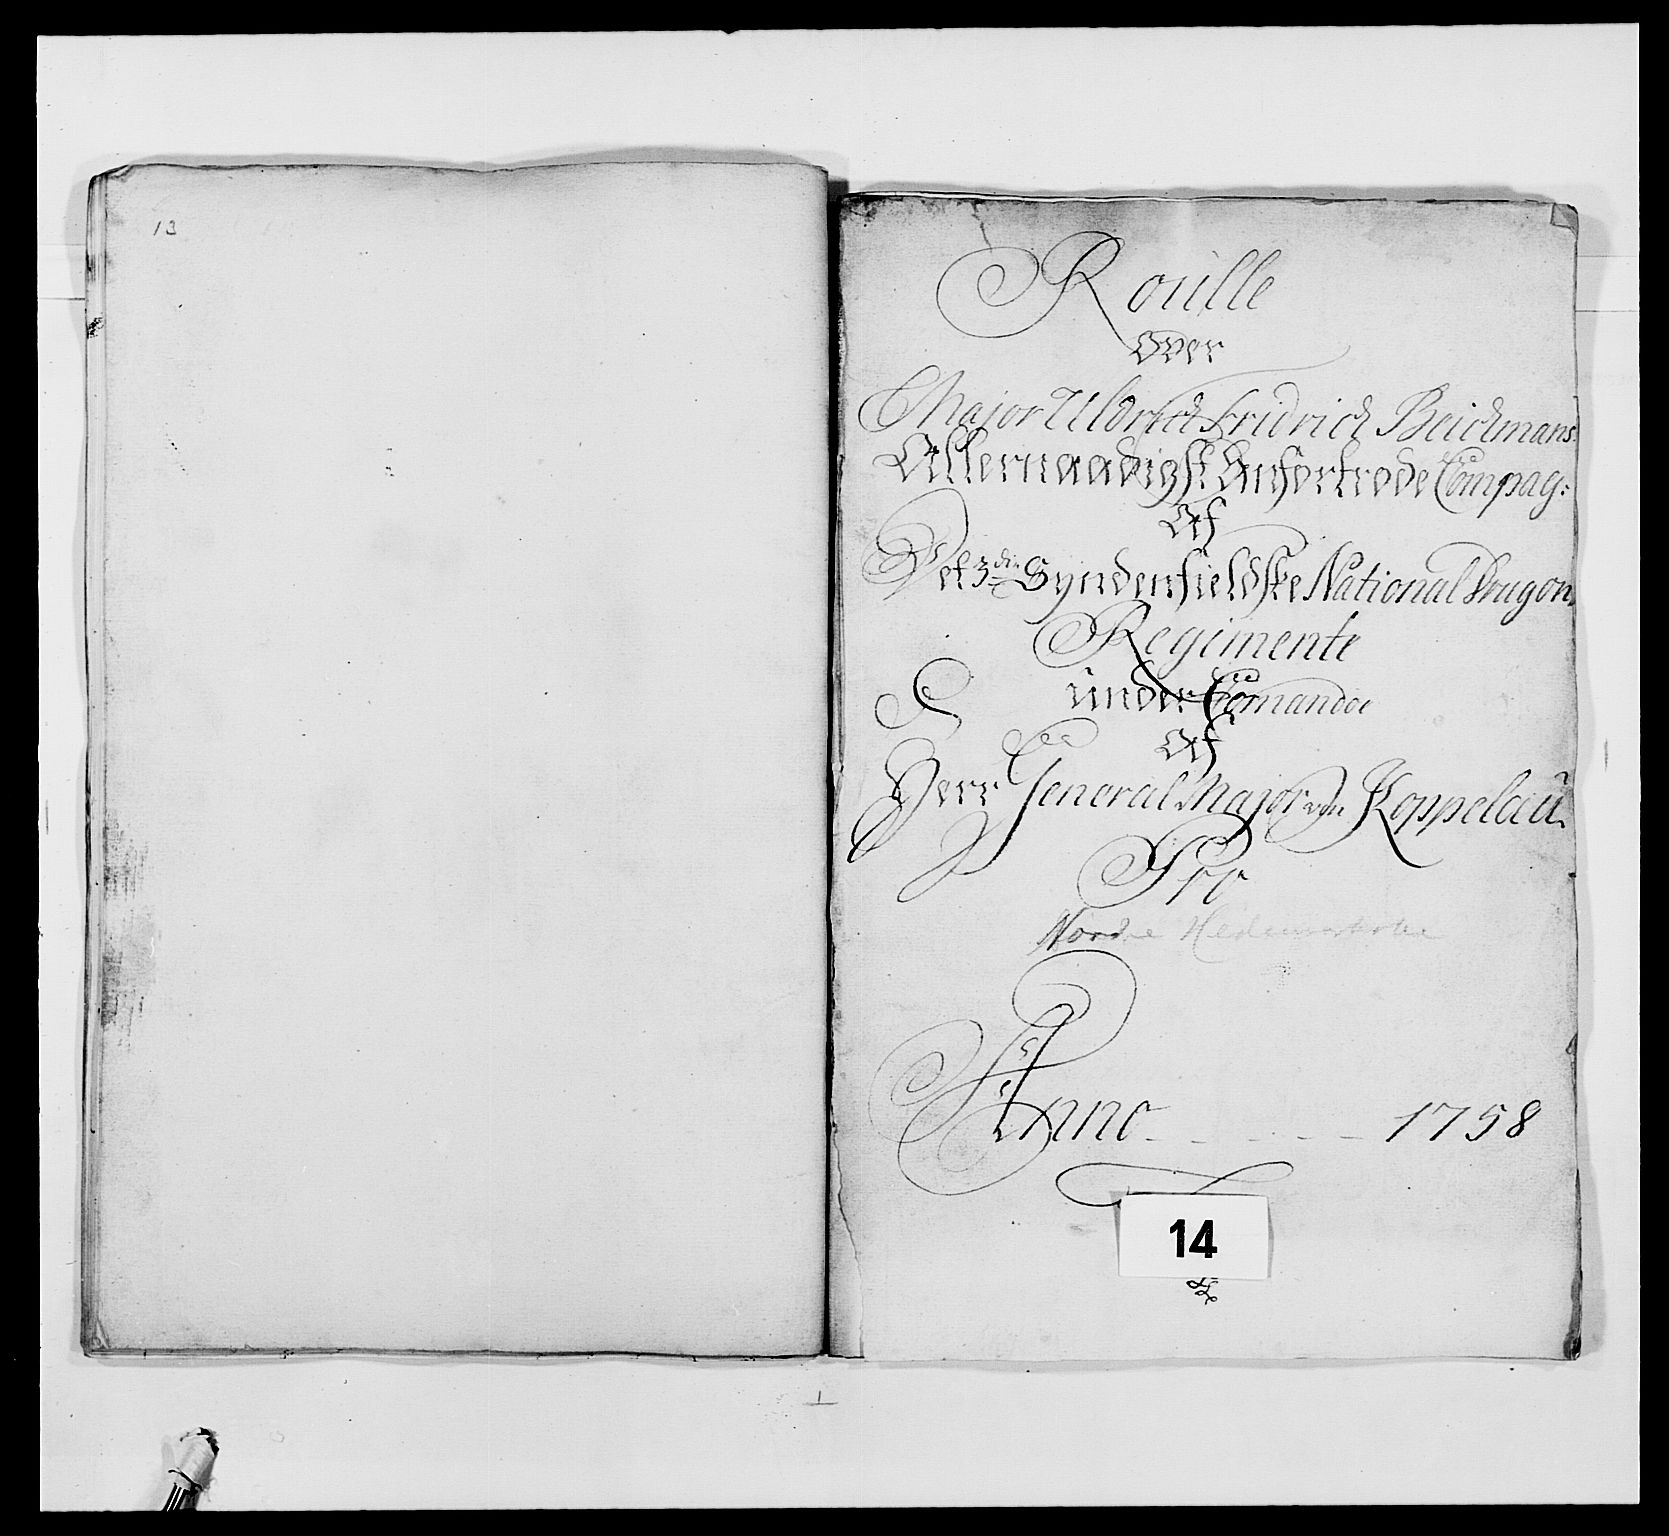 13
Roulle
Over
Major Uldrich Fridrich Beichmans
Allernaadigst Anfortrode Compag:
Af
Det 3die Syndenfieldske National Dragon
Regimente
under Comando
Af
Herr General Major von Koppelau
Pro
Nordre Hedemarkske
Anno - - - - - - 1758
14